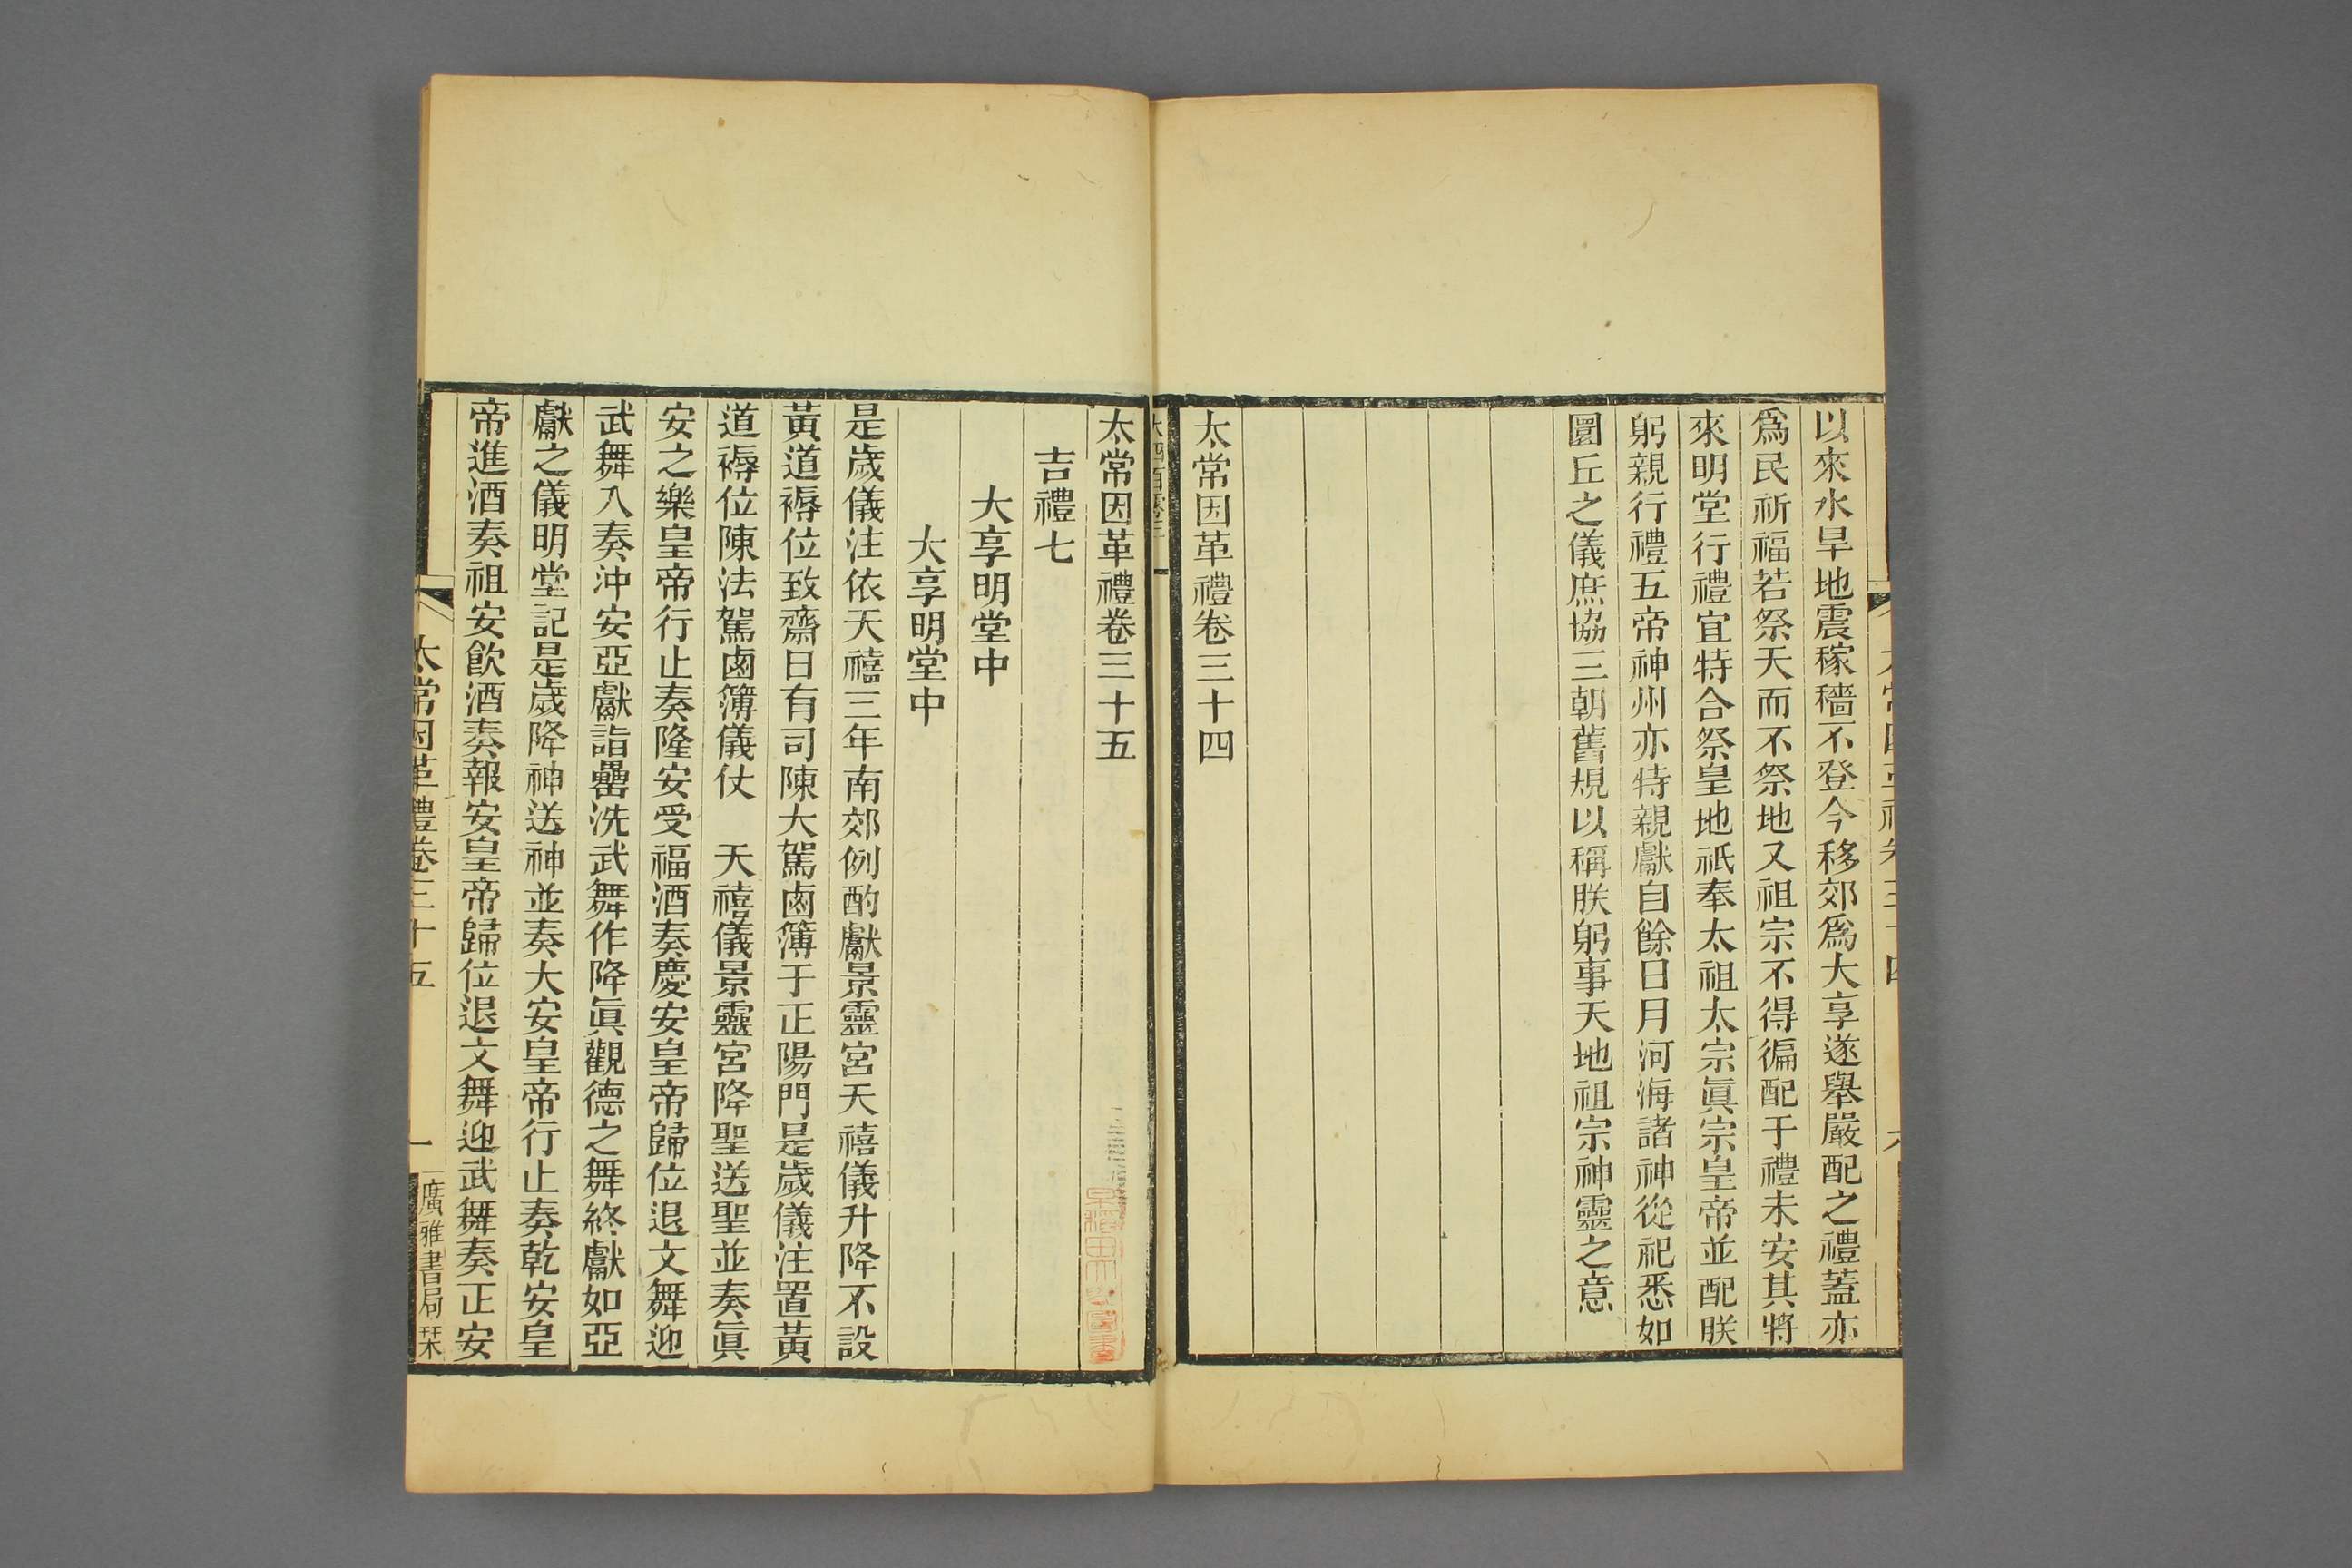 以來水旱地震稼穡不登今移郊爲大享遂舉嚴配之禮蓋亦
爲民祈福若祭天而不祭地又祖宗不得徧配于禮未安其將
來明堂行禮宜特合祭皇地祇奉太祖太宗眞宗皇帝並配朕
躬親行禮五帝神州亦特親獻自餘日月河海諸神從祀悉如
圜丘之儀庶協三朝舊規以稱朕躬事天地祖宗神靈之意
太常因革禮卷三十四
太常因革禮卷三十五
吉禮七
大享明堂中
大享明堂中
是歲儀注依天禧三年南郊例酌獻景靈宮天禧儀升降不設
黃道褥位致齋日有司陳大駕鹵簿于正陽門是歲儀注置黃
道褥位陳法駕鹵簿儀仗　天禧儀景靈宮降聖送聖並奏眞
安之樂皇帝行止奏隆安受福酒奏慶安皇帝歸位退文舞迎
武舞入奏沖安亞獻詣罍洗武舞作降眞觀德之舞終獻如亞
獻之儀明堂記是歲降神送神並奏大安皇帝行止奏乾安皇
帝進酒奏祖安飲酒奏報安皇帝歸位退文舞迎武舞奏正安
太常因革禮卷三十五
一
廣雅書局栞